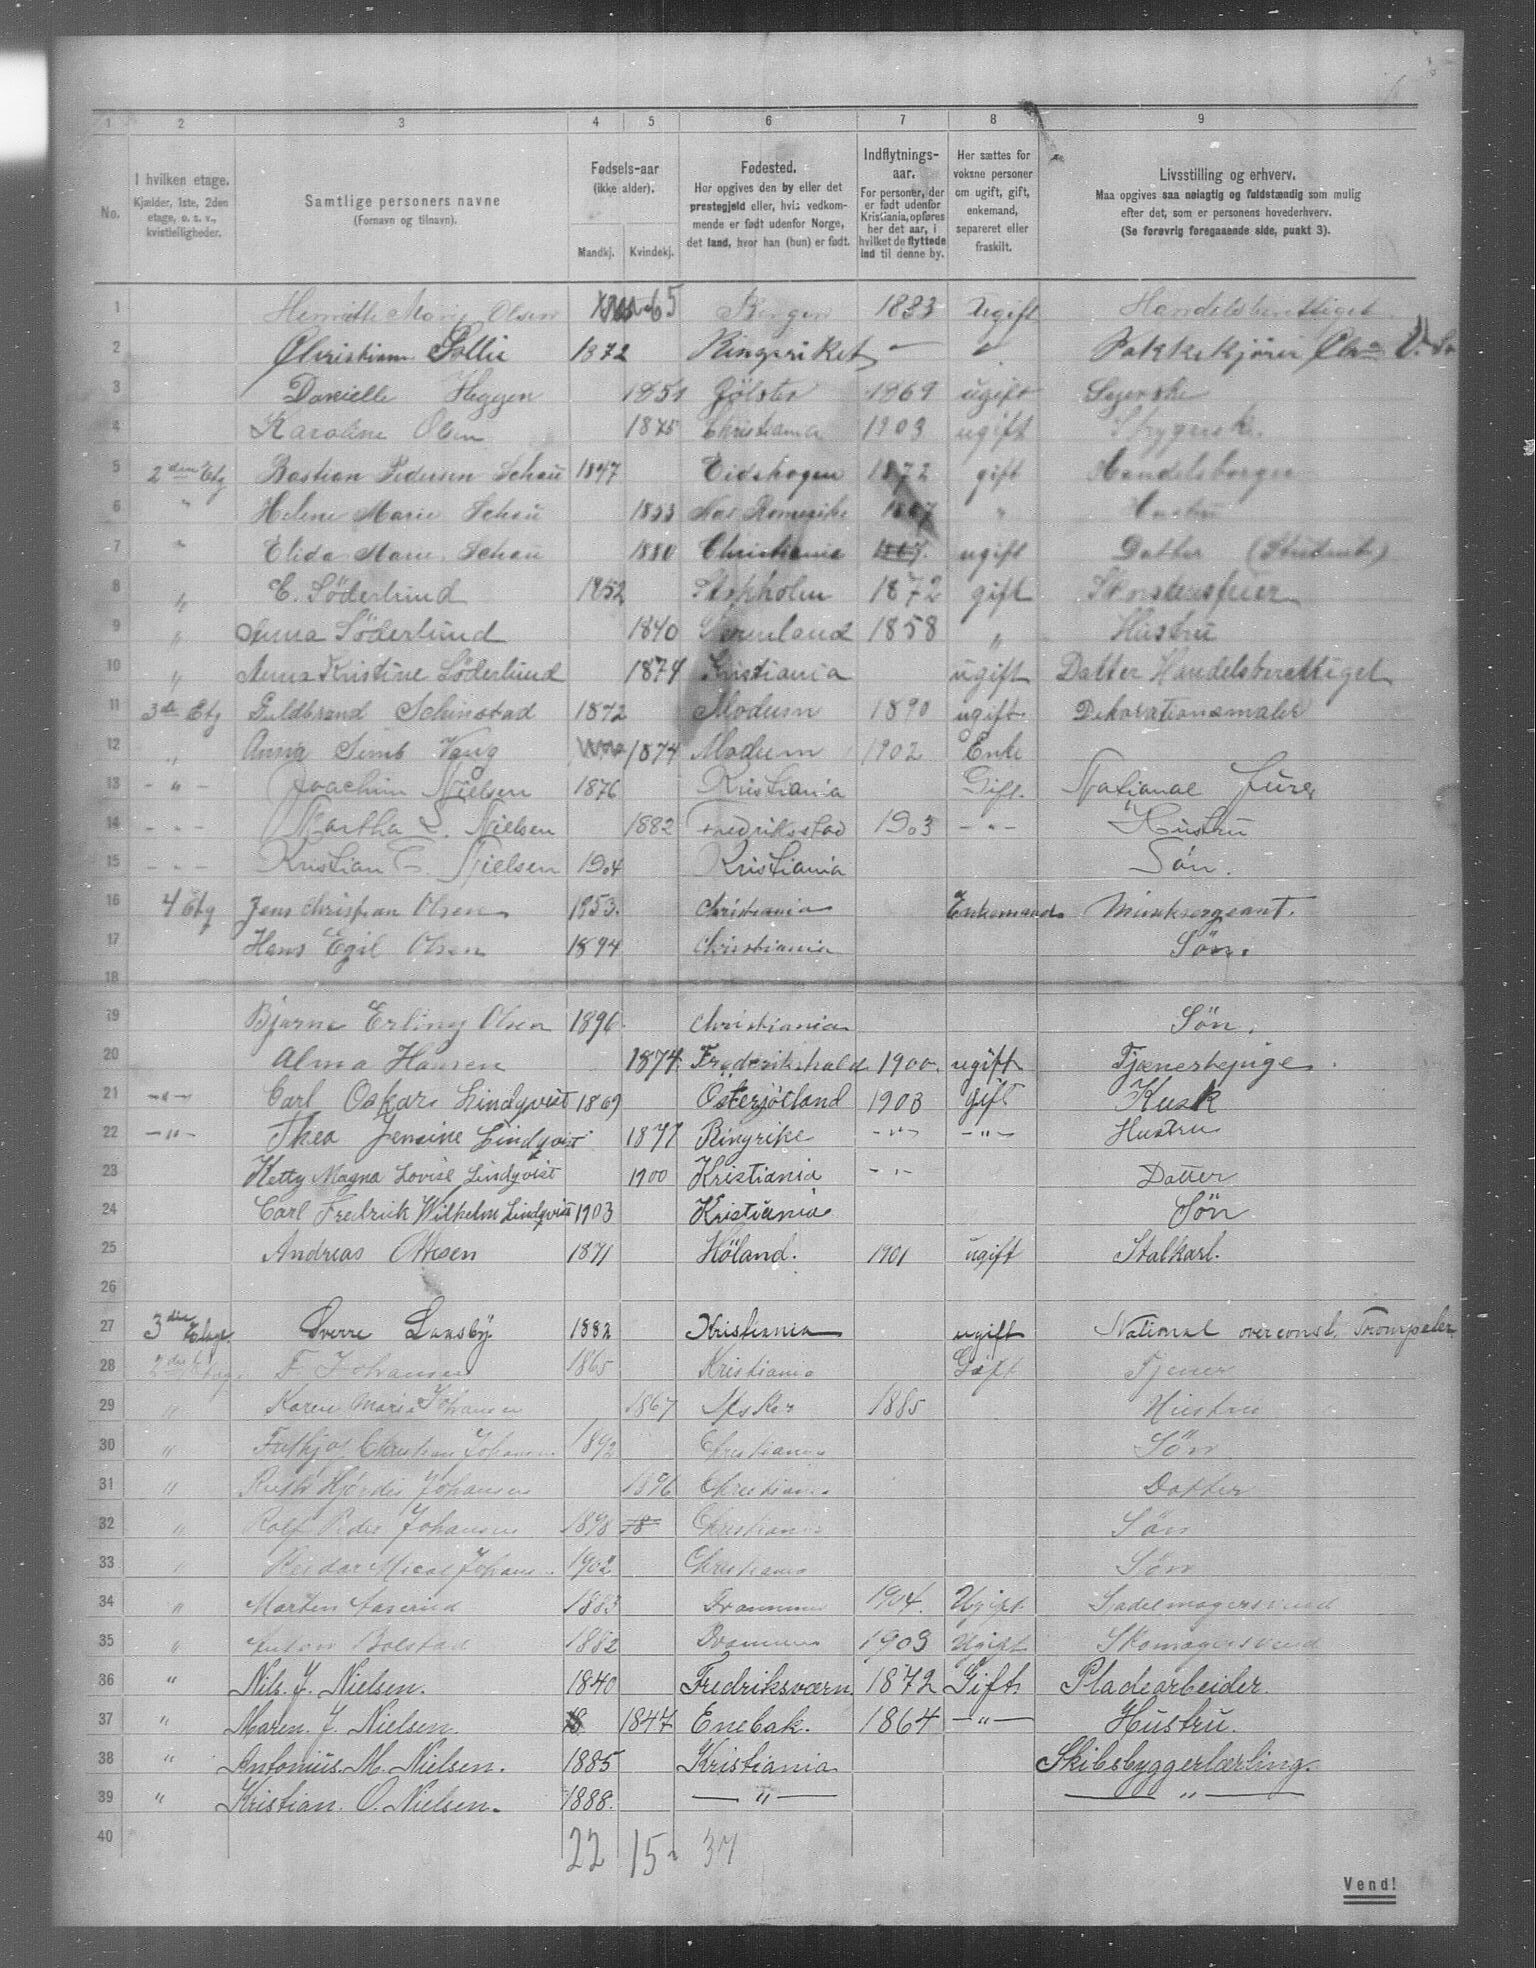 1 2 3 4 5 6 7 8 9
No.
I hvilken etage.
Kjælder, 1ste, 2den
etage, o. s. v.,
kvistleiligheder.
Samtlige personers navne
(Fornavn og tilnavn).
Fødsels-aar
(ikke alder).
Mandkj. Kvindekj.
Fødested.
Her opgives den by eller det
prestegjeld eller, hvis vedkom-
mende er født udenfor Norge,
det land, hvor han (hun) er født.
Indflytnings-
aar.
For personer, der
er født udenfor
Kristiania, opføres
her det aar, i
hvilket de flyttede
ind til denne by.
Her sættes for
voksne personer
om ugift, gift,
enkemand,
separeret eller
fraskilt.
Livsstilling og erhverv.
Maa opgives saa nøiagtig og fuldstændig som mulig
efter det, som er personens hovederhverv.
(Se forøvrig foregaaende side, punkt 3).
1 Marie Olsen 65 Bergen 1883 Ugift Handelsberettiget
2 Christian Sollie 1872 Ringeriket " Pakkekjører
3 Danielle Heggen 1851 Jölster 1869 ugift Syerske
4 Karoline Olsen 1875 Christiania 1903 ugift Strygersk.
5 2den Etg Bastian Pedersen Schau 1847 Eidskogen 1872 gift Handelsborger
6 " Helene Marie Schau 1853 Nes Romerike 1867 " Hustru
7 " Elida Marie Schau 1880 Christiania 1867. ugift Datter (Student)
8 " E. Söderlund 1852 Stokholm 1872 gift Skorstensfeier
9 " Anna Söderlund 1840 Vermland 1858 " Hustru
10 " Anna Kristine Söderlund 1874 Kristiania ugift Datter Handelsberettiget
11 3de Etg Guldbrand Schinstad 1872 Modum 1890 ugift Dekorationsmaler
12 " Anna Simb Vang 1874 Modum 1902 Enke
13 - " - Joachim Nielsen 1876 Kristiania Gift.
14 - " - Martha L. Nielsen 1882 Fredriksstad 1903 - " - Hustru
15 - " - Kristian Nielsen 1904 Kristiania Søn.
16 4 Etg Jens Christian Olsen 1853. Christiania Enkemand Musiksergeant.
17 Hans Egil Olsen 1894 Christiania Sön.
18
19 Bjarne Erling Olsen 1896. Christiania Sön.
20 Alma Hansen 1874. Frederikshald 1900. ugift Tjenestepige.
21 - " - Carl Oskar Lindqvist 1869 Østerjötland 1903 gift Kusk
22 - " - Thea Jensine Lindqvist 1877 Ringrike - " - - " - Hustru
23 Ketty Magna Lovise Lindqvist 1900 Kristiania - " - Datter
24 Carl Fredrick Wilhelm Lindqvist 1903 Kristiania Sön
25 Andreas Ottesen 1871 Höland. 1901 ugift Stalkarl.
26
27 3die Etage. Sverre Lansby 1882 Kristiania ugift National overconst. Trompeter
28 2den F Johansen 1865 Kristiania Gift Tjener
29 " Karen Maria Johansen 1867 Asker 1885 Hustru
30 " Frithjof Christian Johansen 1892 Christiania Sön
31 " Ruth Hjørdis Johansen 1896 Christiania Datter
32 " Rolf Peder Johansen 1898 18 Christiania Sön
33 " Reidar Johans. 1902 Christiania Sön
34 " Morten Aaserud 1883 Drammen 1904. Ugift Sadelmagersvend
35 " Anton Bolstad 1882 Drammen 1903 Ugift Skomagersvend
36 " Nils. J. Nielsen. 1840 Fredriksværn. 1872 Gift. Pladearbeider.
37 " Maren. J. Nielsen. 18 1847 Enebak. 1864 - " - Hustru.
38 " Antonius. M. Nielsen. 1885 Kristiania Skibsbyggerlærling.
39 " Kristian. O. Nielsen. 1888. - " - - " -
40 22 15 37
Vend!